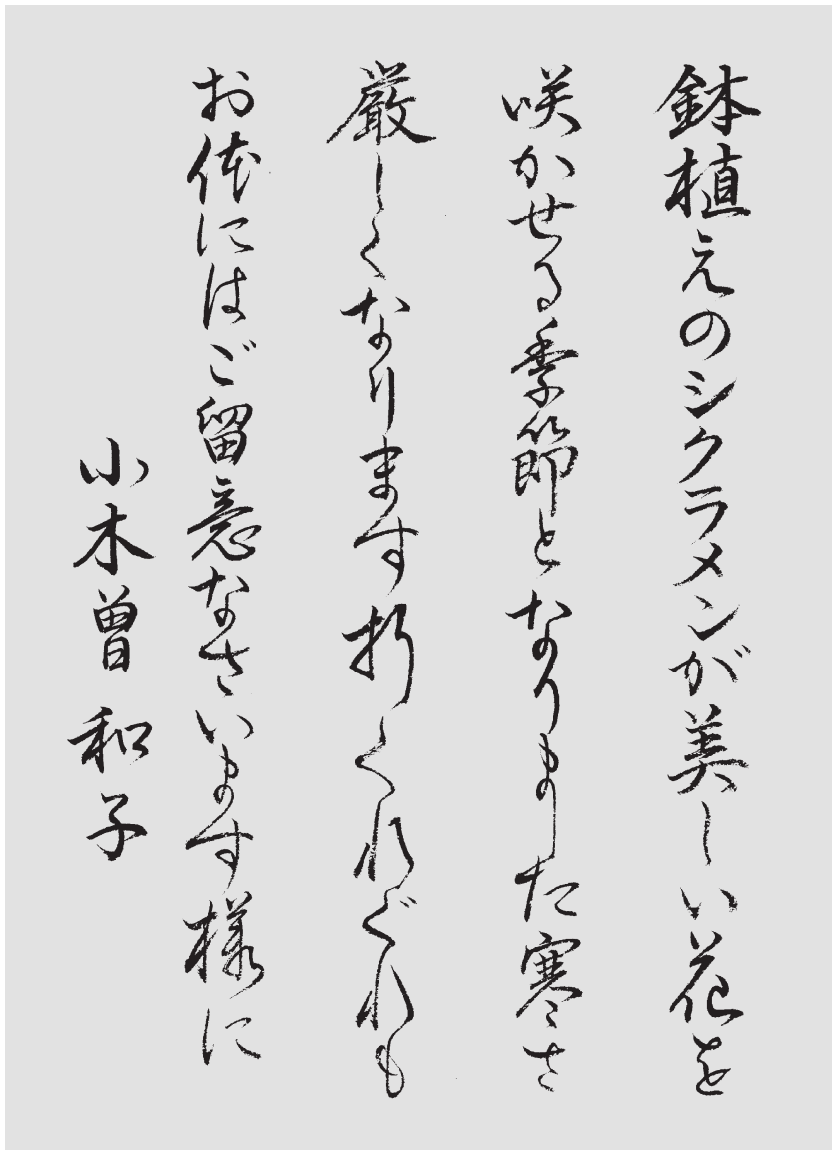 鉢植えのシクラメンが美しい花を
咲かせる季節となりました寒さ
厳しくなります折くれぐれも
お体にはご留意なさいます様に
小木曽 和子